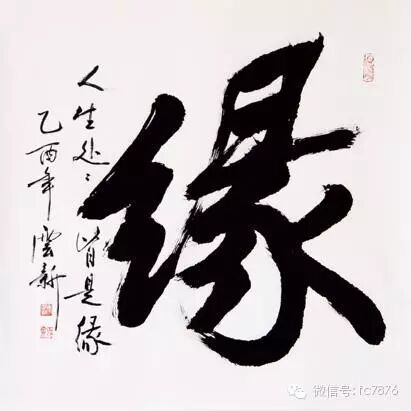 缘
人生处々皆是缘
乙酉年 云新
微信号: fc7876